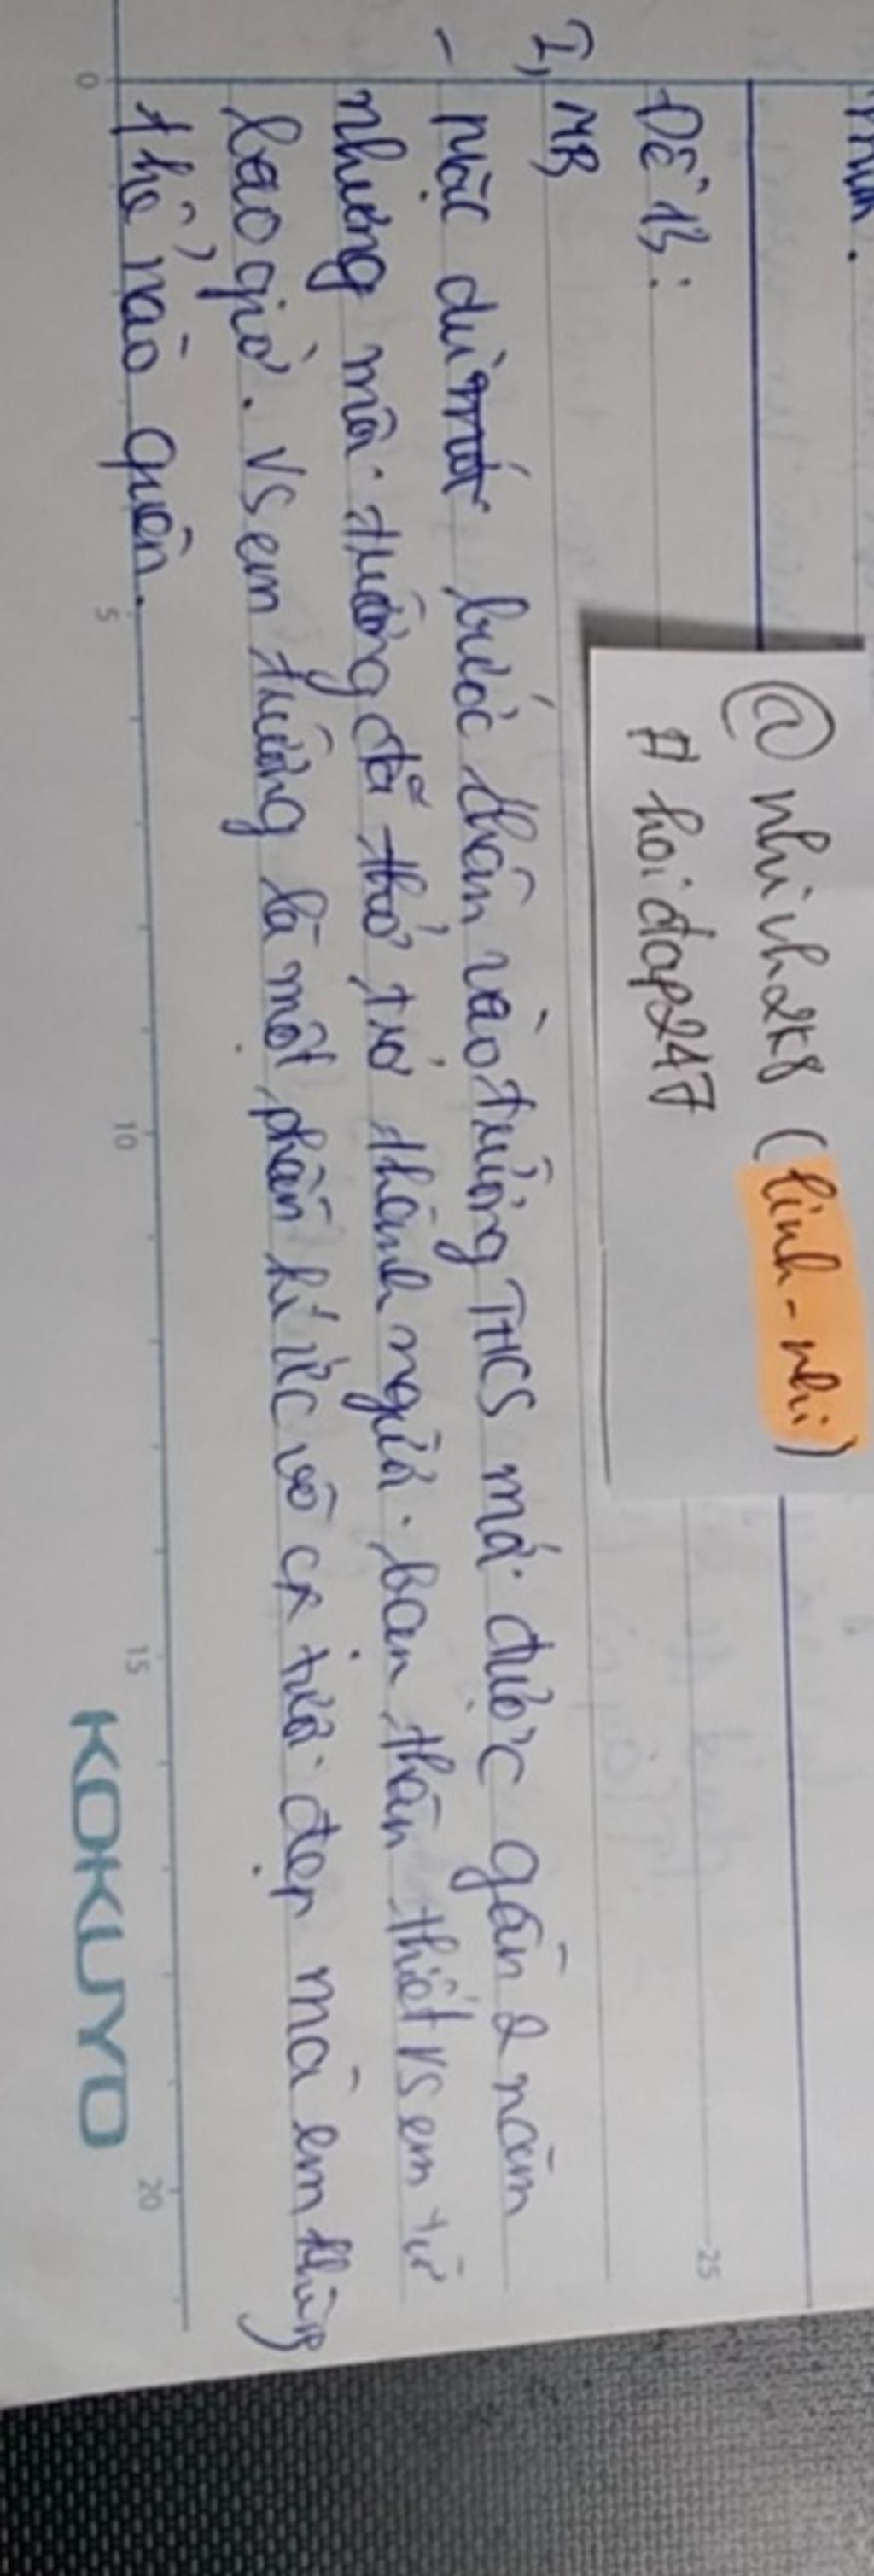 @nhinh2k8 (linh-nhi)
# hoidap247
Đề 13:
I, MB
- Mặc dù mới bước chân vào trường THCS mới được gần 2 năm
nhưng mái trường đã thở trở thành người bạn thân thiết vs em từ
bao giờ. Vs em trường là một phần kí ức vô cx tươi đẹp mà em không
thể nào quên.
0
5
10
15
20
25
KOKUYO